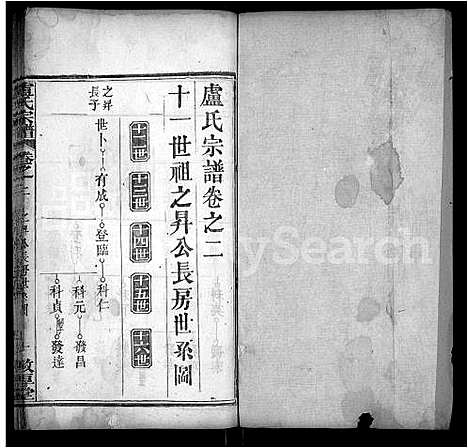 盧氏宗譜卷之二
十一世祖之昇公長房世系圖
十二世 十三世 十四世 十五世 十六世
之昇長子
世卜 有成 登臨 科仁
科元 發昌
科貞 發達
盧氏宗譜 卷之二
敦厚堂
MySearch